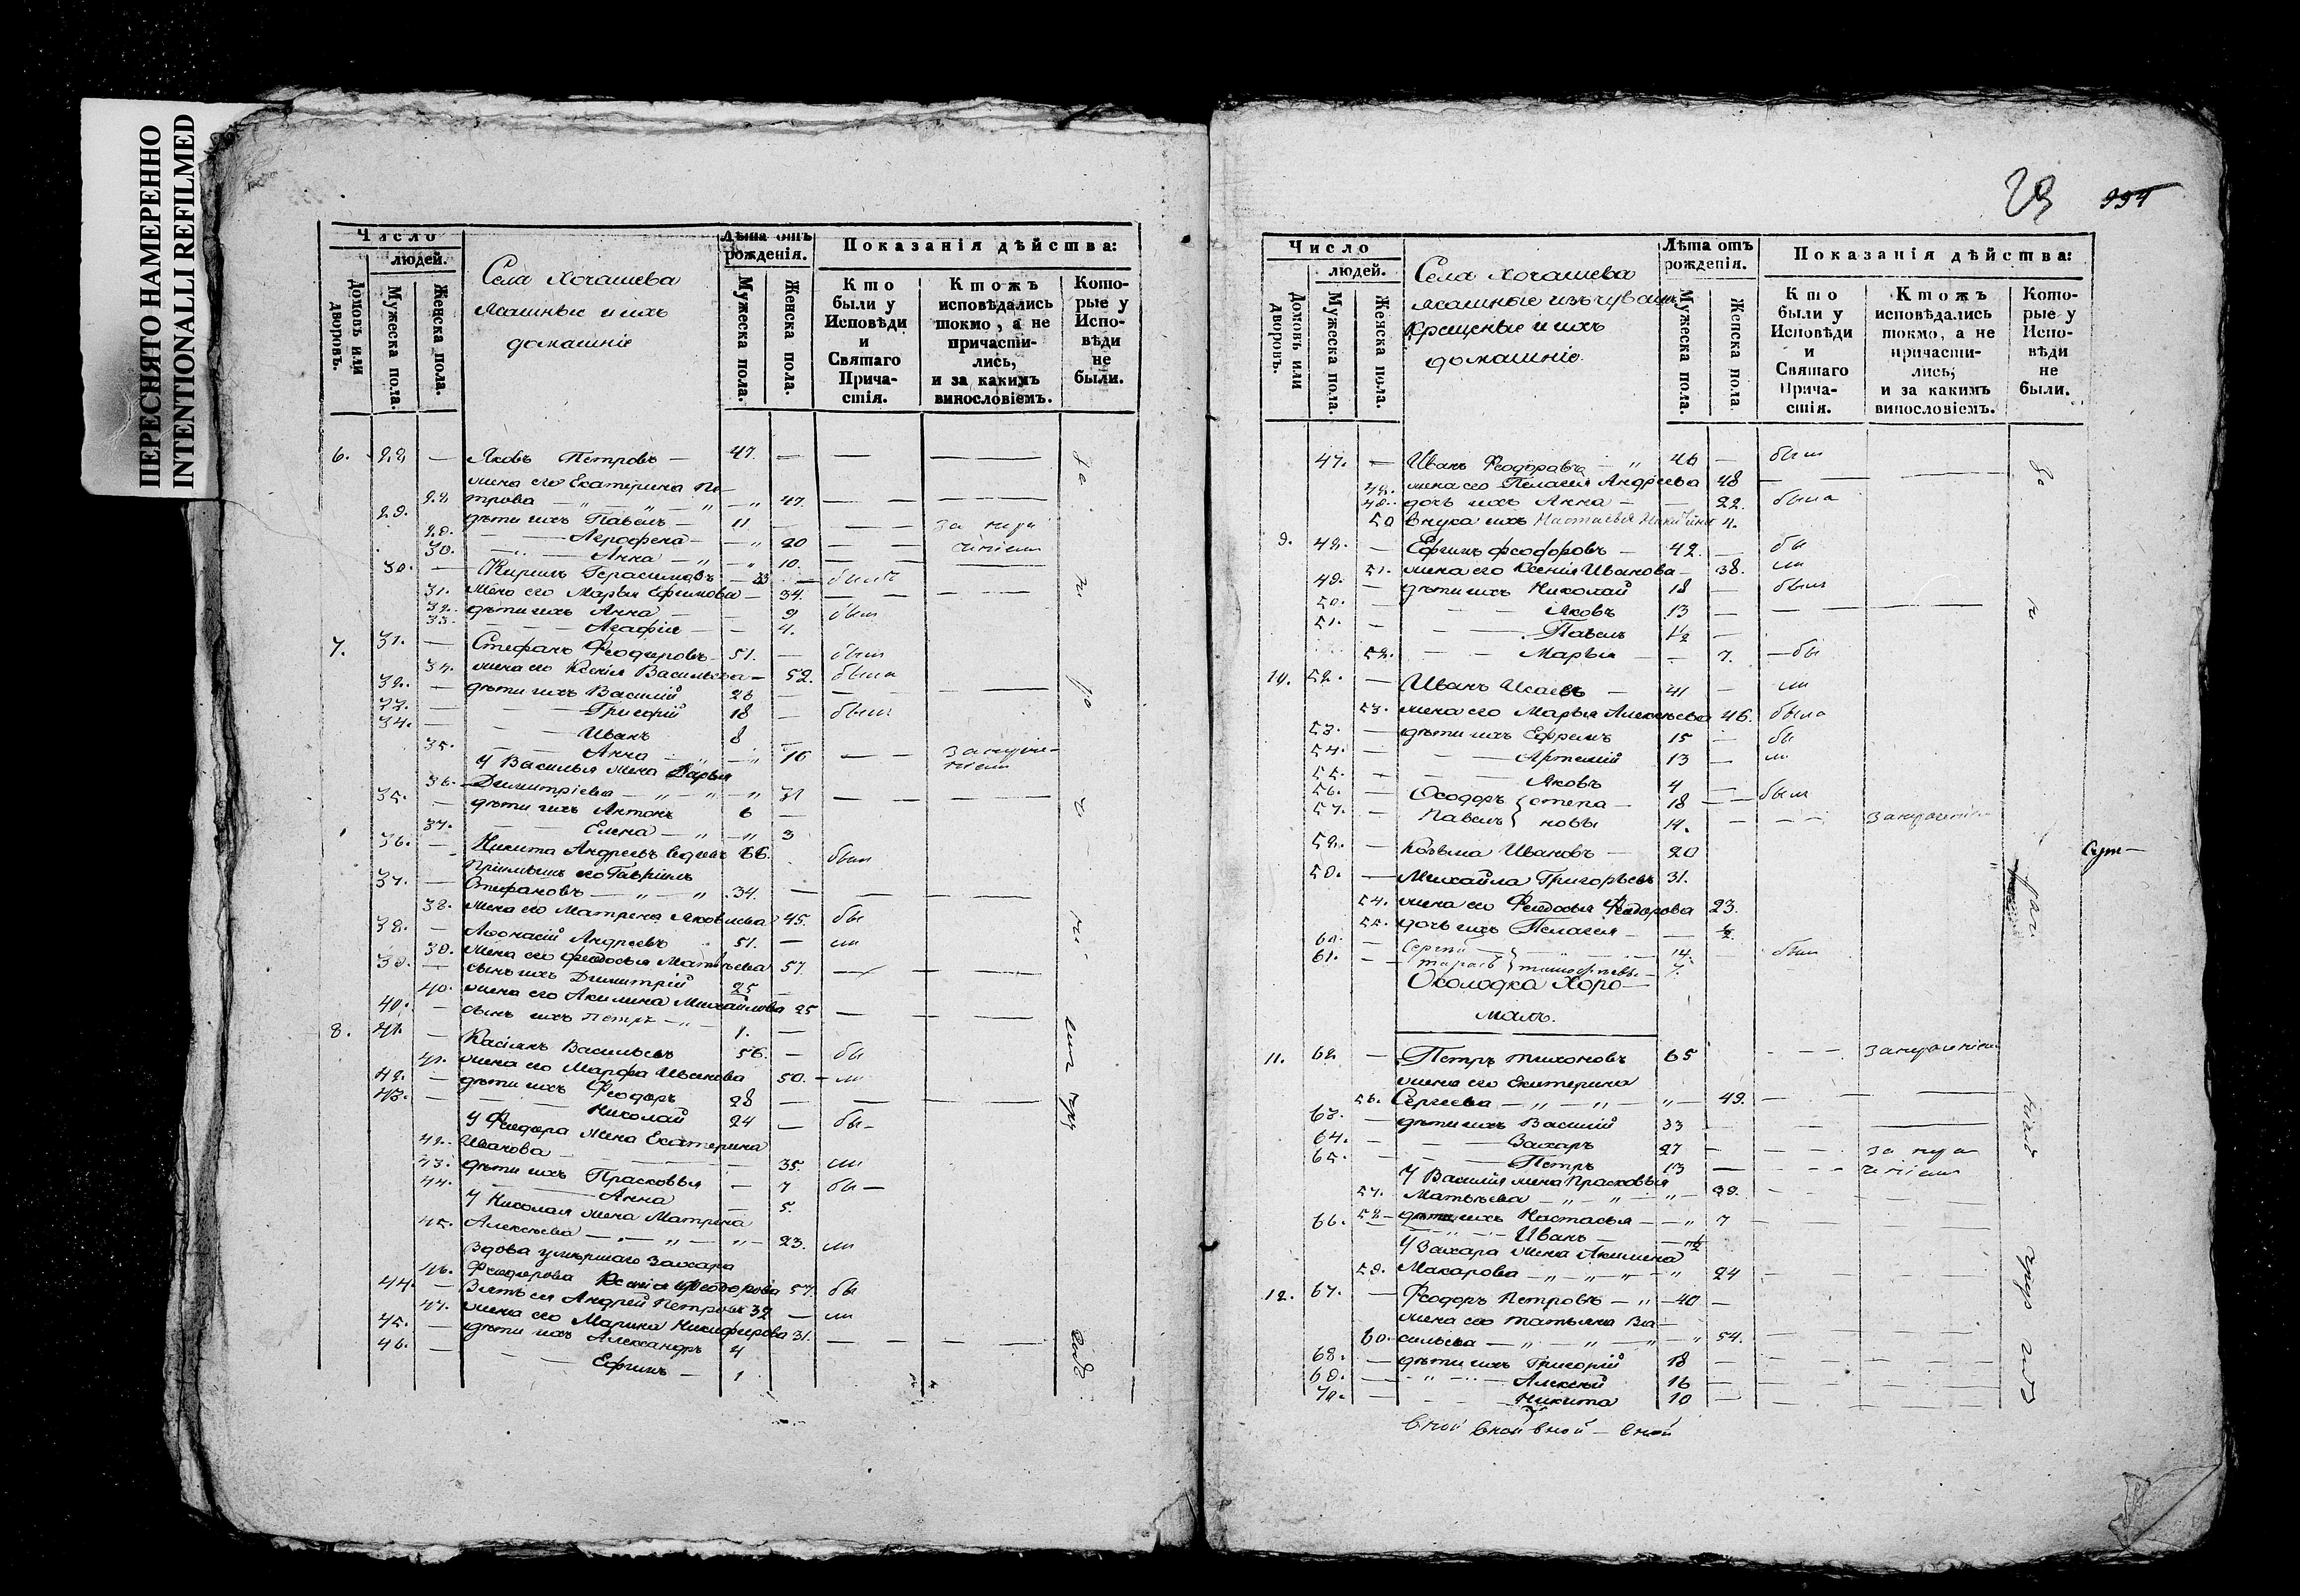 ПЕРЕСНЯТО НАМЕРЕННО
INTENTIONALLI REFILMED
Число
людей.
Домовъ или дворовъ.
Мужеска пола.
Женска пола.
Села Хочашева
Ясашные и ихъ
домашніе
Лѣта отъ рожденія.
Мужеска пола.
Женска пола.
Показанія дѣйства:
Кто были у Исповѣди и Святаго Причастія.
Ктожъ исповѣдались токмо, а не причастились, и за какимъ винословіемъ.
Которые у Исповѣди не были.
6. 28 — Яковъ Петровъ — 47. —
жена его Екатерина Пе-
28 трова — 47.
29. дѣти ихъ Павелъ — 11
29. Агрофена — 20
30. Анна — 10.
30. — Кирилъ Герасимовъ — 33 — былъ
31. жена его Марья Ефимова — 34.
32. дѣти ихъ Анна — 9 были
33. Агафія — 4.
7. 31. — Стефанъ Феодоровъ 51. — были
34. жена его Ксенія Васильева — 52. была
32. — дѣти ихъ Василій 26
33. — Григорій 18 — были
34. — Иванъ 8 —
35. Анна — 16
У Василья жена Дарья
36. Димитріева — 31
35. — дѣти ихъ Антонъ 6 —
37. Елена — 3
36. — Никита Андреевъ вдовъ 66. были
Пріимышъ его Гаврилъ
37. — Стефановъ — 34. —
38. жена его Матрена Яковлева 45. бы
38. — Афонасій Андреевъ 51. — ли
39. жена его Феодосья Матвѣева 57.
39. — сынъ ихъ Димитрій 25 —
40. жена его Акилина Михайлова 25
40. — сынъ ихъ Петръ — 1. —
8. 41. — Касіянъ Васильевъ 56. — бы
41. жена его Марфа Иванова 50. — ли
42. — дѣти ихъ Феодоръ 28 —
43. — Николай 24 — бы —
У Феодора жена Екатерина
42. Иванова — 35. ли
43. дѣти ихъ Прасковья — 7 бы —
44. Анна — 5.
У Николая жена Матрена
45. Алексѣева — 23. ли
Вдова умершаго Захара
46. Феодорова Ксенія Феодорова 57. бы
44. — Зять ея Андрей Петровъ 32 — ли
47. жена его Марина Никифорова 31.
45. — дѣти ихъ Александръ 4
46. — Ефимъ — 1
29 994
Число
людей.
Домовъ или дворовъ.
Мужеска пола.
Женска пола.
Села Хочашева
ясашные изъ чувашъ
крещеные и ихъ
домашніе.
Лѣта отъ рожденія.
Мужеска пола.
Женска пола.
Показанія дѣйства:
Кто были у Исповѣди и Святаго Причастія.
Ктожъ исповѣдались токмо, а не причастились, и за какимъ винословіемъ.
Которые у Исповѣди не были.
47. — Иванъ Феодоровъ — 46 — были
48. жена его Пелагея Андреева 48
49. дочь ихъ Анна — 22. была
50 внука ихъ Настасья 4.
9. 48. — Ефимъ Феодоровъ — 42. — бы
51. жена его Ксенія Иванова — 38. ли
49. — дѣти ихъ Николай 18 — были
50. — Яковъ 13 —
51. — Павелъ 1/2 —
52. Марья — 7. — бы
10. 52. — Иванъ Исаевъ — 41 — ли
53. жена его Марья Алексѣева 46. была
53. — дѣти ихъ Ефремъ 15 — бы
54. — Артемій 13 — ли
55. — Яковъ 4 —
56. — Феодоръ } степа — 18 — были
57. — Павелъ } новы 14. —
58. — Козьма Ивановъ — 20
59. — Михайла Григорьевъ 31.
54. жена его Феодосья Феодорова 23.
55. дочь ихъ Пелагея — 1/2
60. — Сергѣй 14. — были
61. — Тарасъ } тимофеевы — 7.
Околодка Хоро-
малъ.
11. 62 — Петръ Тихоновъ 65
жена его Екатерина
56. Сергеева — 49.
63. — дѣти ихъ Василій 33 —
64. — Захаръ 27 —
65. — Петръ 13 —
У Василія жена Прасковья
57. Матвѣева — 39.
58 — дѣти ихъ Настасья — 7
66. — Иванъ — 1/2
У Захара жена Акилина
59. Макарова — 24
12. 67. — Феодоръ Петровъ — 40 —
жена его Татьяна Ва-
60. сильева — 54.
68. — дѣти ихъ Григорій 18 —
69. — Алексѣй 16 —
70. — Никита 10 —